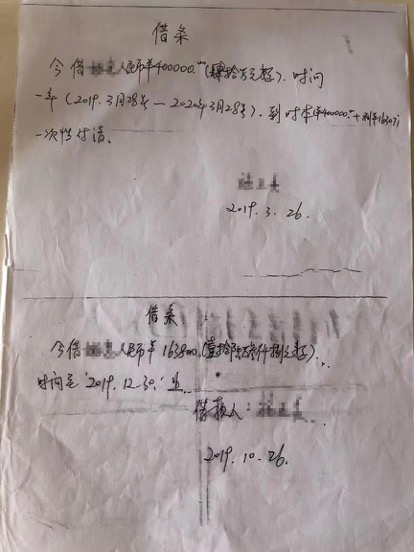 借条
今借人民币¥400000.00(肆拾万元整).时间
一年(2019.3月28号—2020年3月28号).到时本(¥400000.00+利¥1630
一次性付清、
2019.3.26.
借条
今借人民币¥ 163800.(壹拾陆万
时间至'2019.12.30.'止..
借款人:
2019.10.26.